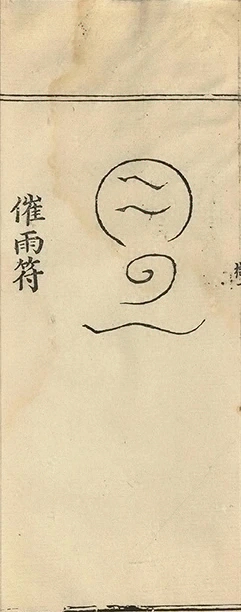 催雨符